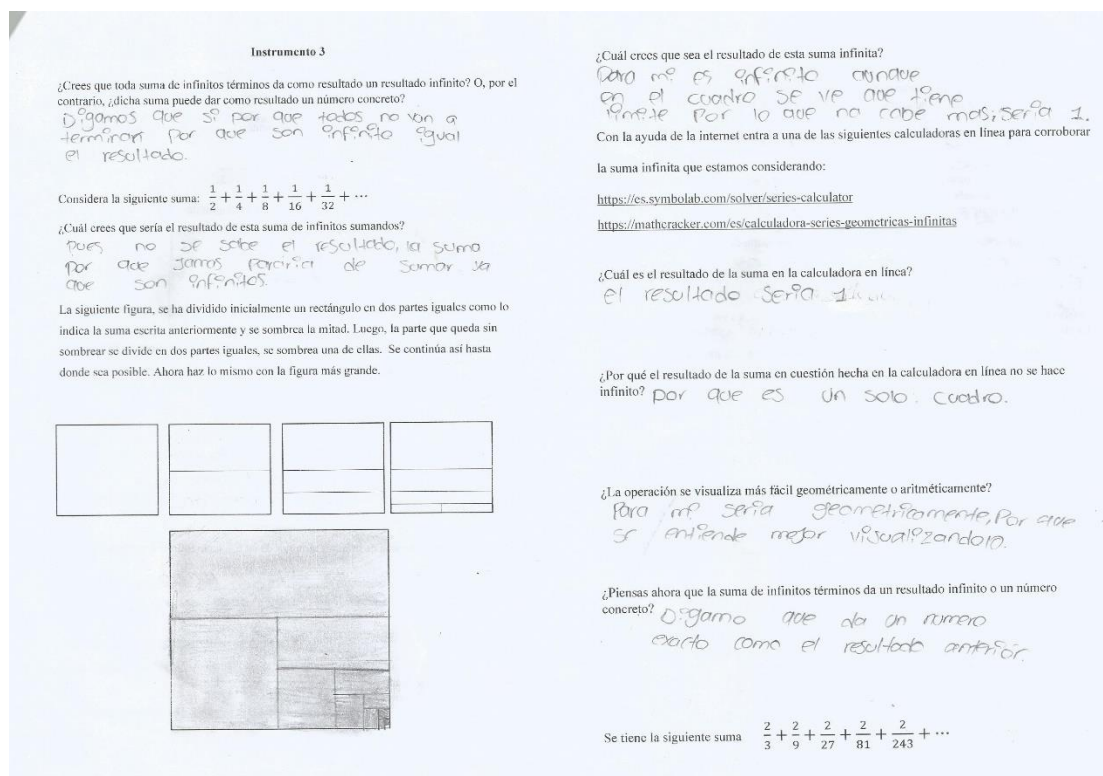 Instrumento 3
¿Crees que toda suma de infinitos términos da como resultado un resultado infinito? O, por el
contrario, ¿dicha suma puede dar como resultado un número concreto?
Digamos que si por que todos no van a
terminar por que son infinito igual
el resultado.
Considera la siguiente suma: 1/2 + 1/4 + 1/8 + 1/16 + 1/32 + ⋯
¿Cuál crees que sería el resultado de esta suma de infinitos sumandos?
pues no se sabe el resultado, la suma
por que jamas pararia de sumar ya
que son infinitos.
La siguiente figura, se ha dividido inicialmente un rectángulo en dos partes iguales como lo
indica la suma escrita anteriormente y se sombrea la mitad. Luego, la parte que queda sin
sombrear se divide en dos partes iguales, se sombrea una de ellas. Se continúa así hasta
donde sea posible. Ahora haz lo mismo con la figura más grande.
¿Cuál crees que sea el resultado de esta suma infinita?
Para mi es infinito aunque
en el cuadro se ve que tiene
limite por lo que no cabe mas, seria 1.
Con la ayuda de la internet entra a una de las siguientes calculadoras en línea para corroborar
la suma infinita que estamos considerando:
https://es.symbolab.com/solver/series-calculator
https://mathcracker.com/es/calculadora-series-geometricas-infinitas
¿Cuál es el resultado de la suma en la calculadora en línea?
el resultado seria 1
¿Por qué el resultado de la suma en cuestión hecha en la calculadora en línea no se hace
infinito? por que es un solo. cuadro.
¿La operación se visualiza más fácil geométricamente o aritméticamente?
Para mi seria geometricamente, Por que
se entiende mejor visualizandolo.
¿Piensas ahora que la suma de infinitos términos da un resultado infinito o un número
concreto? Digamo que da un numero
exacto como el resultado anterior.
Se tiene la siguiente suma 2/3 + 2/9 + 2/27 + 2/81 + 2/243 + ⋯